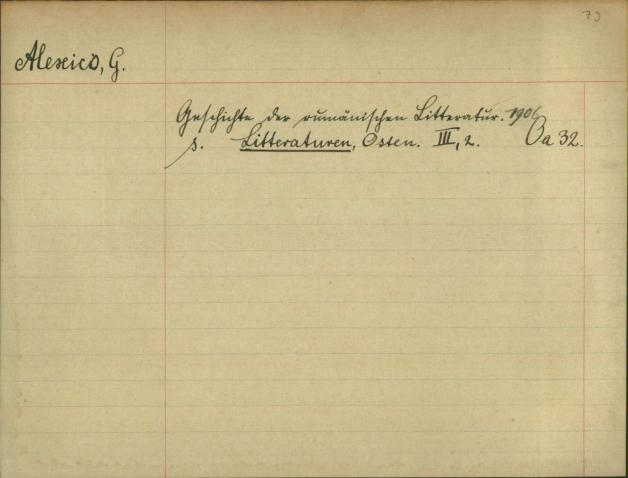 79
Alexics, G.
Geschichte der rumänischen Litteratur. 1906
s. Litteraturen, Osten. III, 2. Oa 32.